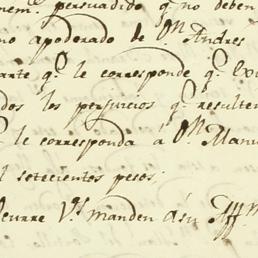 persuadido q.e no deben
mo apoderado de D.n Andres
arte q.e le corresponde q.e
dos los perjuicios q.e resulten
le corresponda á D.n Manu
l setecientos pesos.
ocurre V.s manden ásu Aff.mo